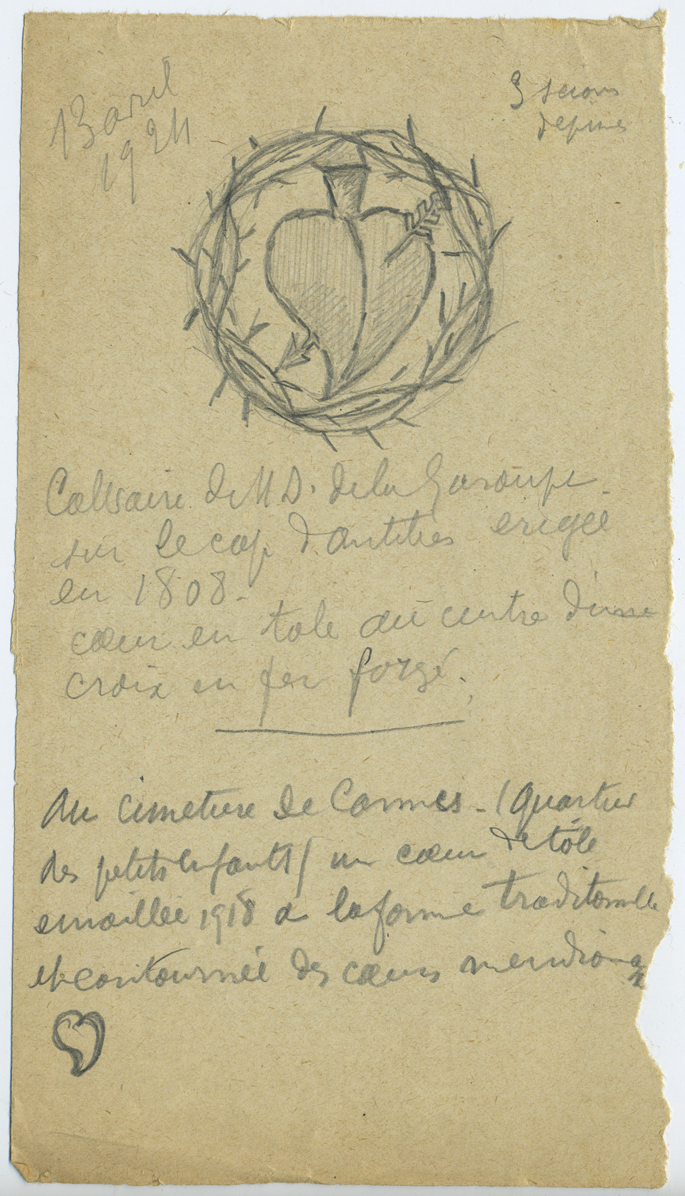 13 avril
1924
3 scions
depines
Calvaire de N D. de la Garoupe
sur le cap d'antibes erigée
en 1808.
cœur en tole au centre d'une
croix en fer forgé.
Au cimetiere de Cannes - (quartier
des petits enfants) un cœur de tôle
emaillee 1918 a la forme traditionelle
et contournée des cœurs meridionaux